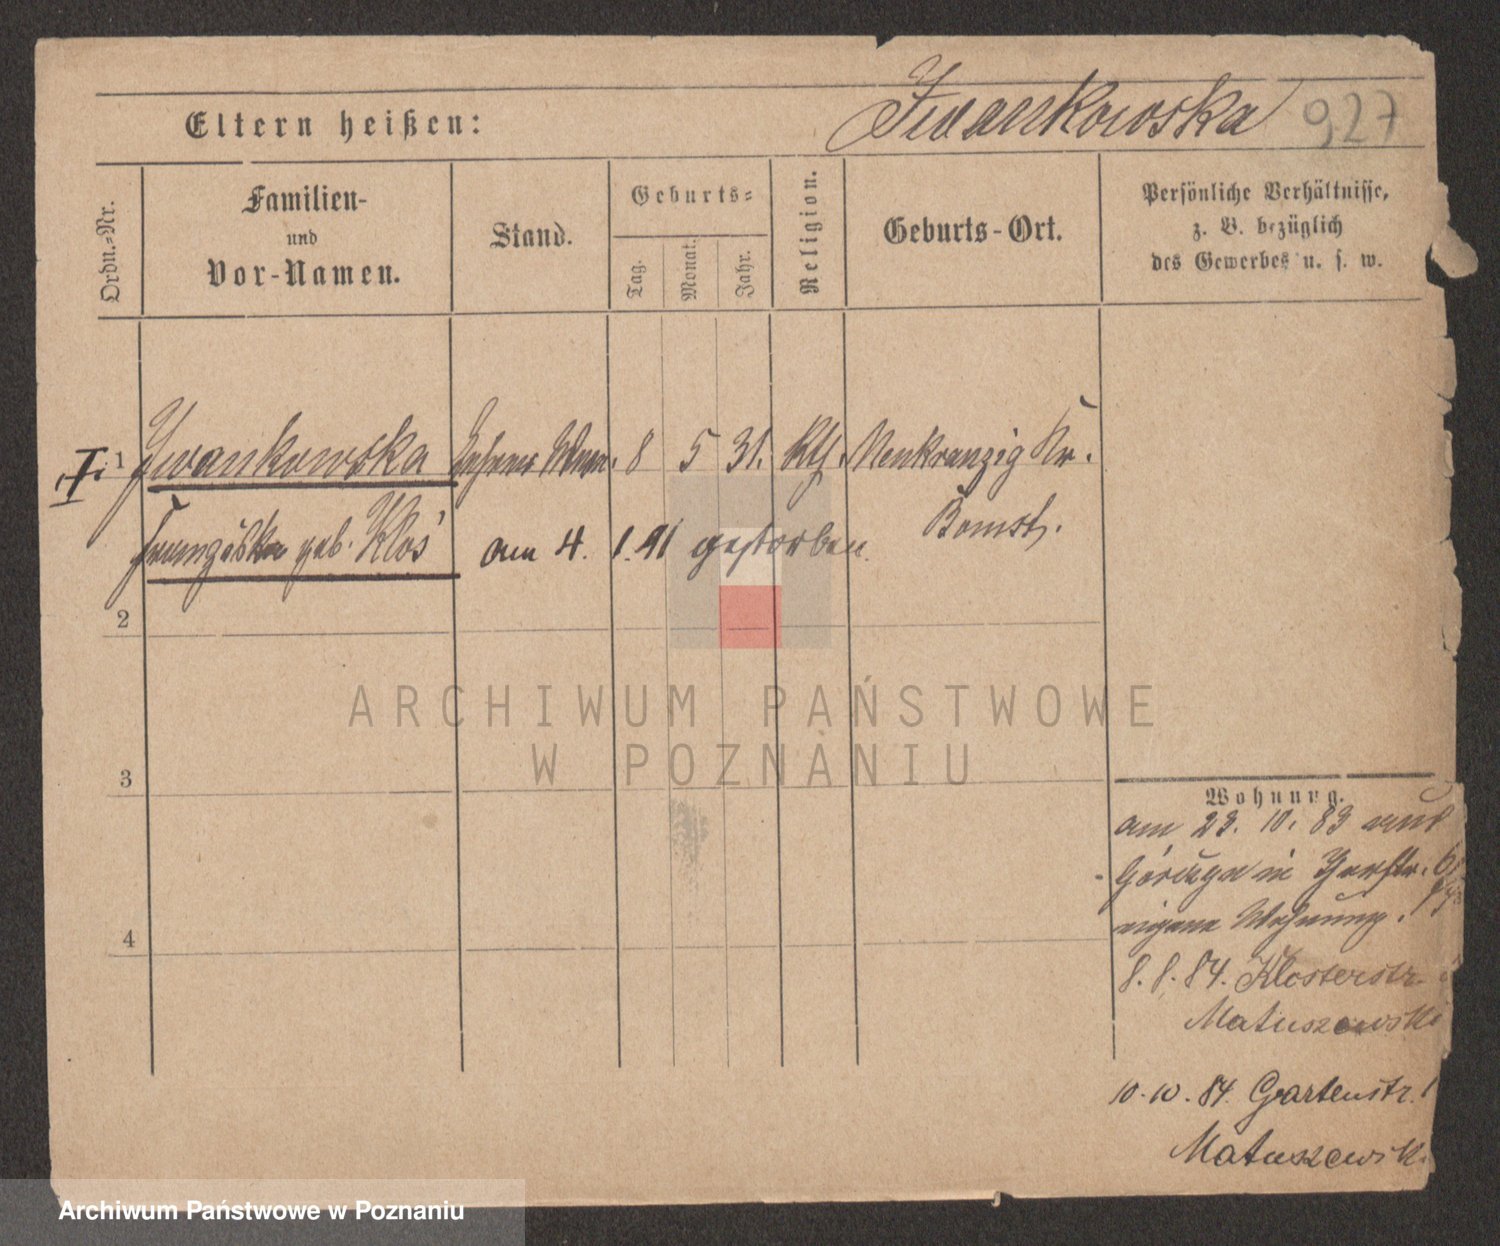 Iwankowska 927
Eltern heißen:
Ordn.-Nr.
Familien-
und
Vor-Namen.
Stand.
Geburts-
Tag.
Monat.
Jahr.
Religion.
Geburts-Ort.
Persönliche Verhältnisse,
z. B. bezüglich
des Gewerbes u. s. w.
I. 1 Iwankowska 8 5 31. Kth. Neukranzig Kr.
Bomst.
geb. Kloś am 4. 1. 91 gestorben.
2
3
4
ARCHIWUM PAŃSTWOWE
W POZNANIU
Wohnung.
am 23. 10. 83 aus
Górczyn in
eigene Wohnung.
8. 8. 84. Klosterstr.
Matuszewski
10. 10. 84. Gartenstr. 1
Matuszewsk
Archiwum Państwowe w Poznaniu